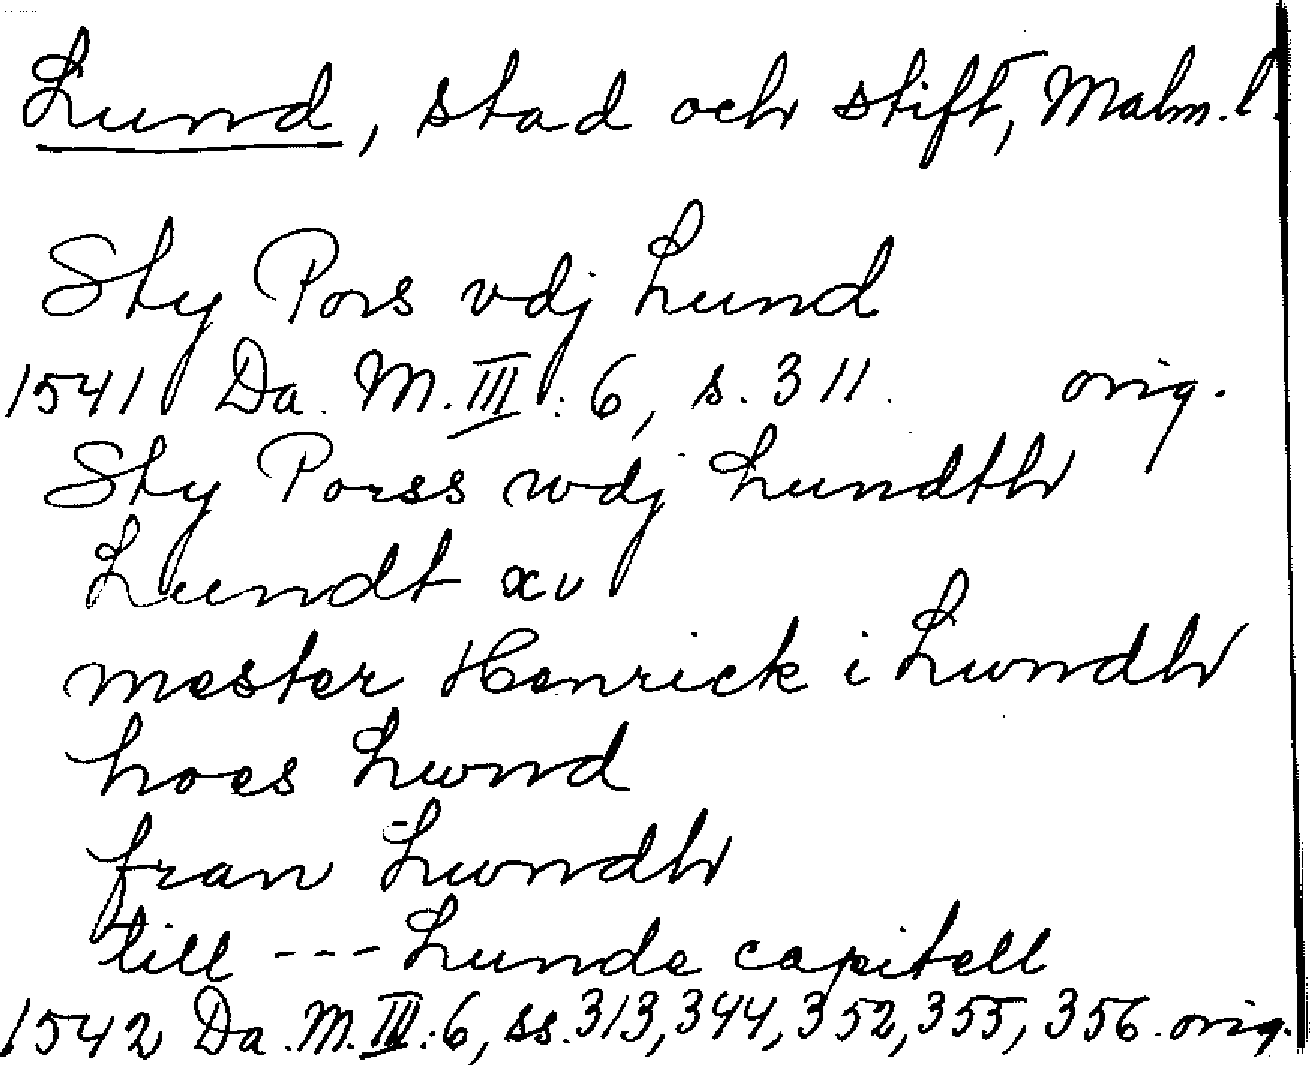 Lund, stad och stift, Malm. l.
Sty Pors vdj Lund
1541 Da. M. III: 6, s. 311. orig.
Sty Porss wdj Lundth
Lundt xv
mester Henrick i Lwndh
hoes Lwnd
fran Lwndh
till --- Lunde capitell
1542 Da. M. III: 6, ss. 313, 344, 352, 355, 356. orig.